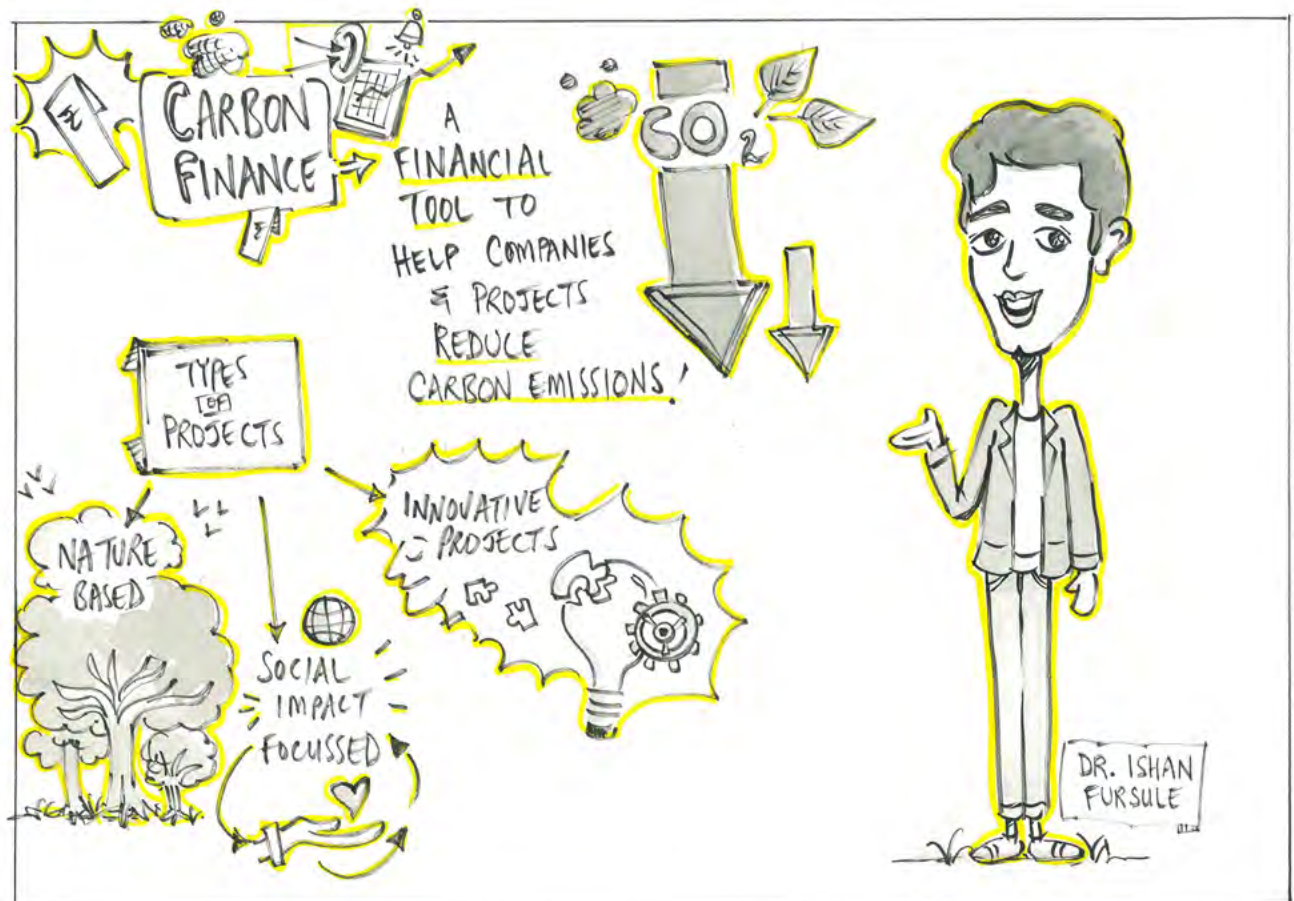 CARBON
FINANCE
₹
₹
A
FINANCIAL
TOOL TO
HELP COMPANIES
& PROJECTS
REDUCE
CARBON EMISSIONS!
CO2
TYPES
OF
PROJECTS
NATURE
BASED
SOCIAL
IMPACT
FOCUSSED
INNOVATIVE
PROJECTS
DR. ISHAN
FURSULE